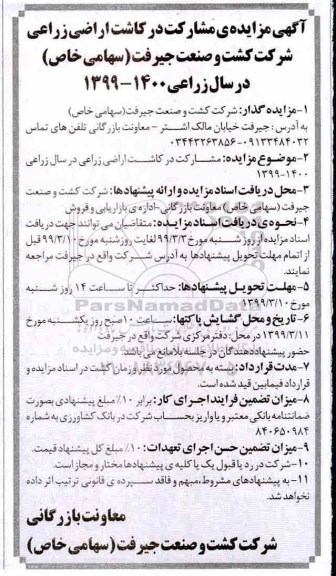 آگهی مزایده‌ی مشارکت در کاشت اراضی زراعی
شرکت کشت و صنعت جیرفت (سهامی خاص)
در سال زراعی ۱۴۰۰-۱۳۹۹
۱-مزایده گذار: شرکت کشت و صنعت جیرفت(سهامی خاص)
به آدرس: جیرفت خیابان مالک اشتر - معاونت بازرگانی تلفن های تماس
۰۳۴۴۳۲۶۳۸۵۶-۰۹۱۳۳۴۸۴۰۳۲
۲-موضوع مزایده: مشارکت در کاشت اراضی زراعی در سال زراعی
۱۳۹۹-۱۴۰۰
۳-محل دریافت اسناد مزایده و ارائه پیشنهادها: شرکت کشت و صنعت
جیرفت (سهامی خاص) معاونت بازرگانی-اداره ی بازاریابی و فروش
۴-نحوه ی دریافت اسناد مزایده: متقاضیان می توانند جهت دریافت
اسناد مزایده از روز شنبه مورخ ۹۹/۳/۳ لغایت روز شنبه مورخ ۹۹/۳/۱۰ قبل
از اتمام مهلت تحویل پیشنهادها به آدرس شرکت واقع در جیرفت مراجعه
نمایند.
۵-مهلت تحویل پیشنهادها: حداکثر تا ساعت ۱۴ روز شنبه
مورخ ۱۳۹۹/۳/۱۰
۶-تاریخ و محل گشایش پاکتها: ساعت ۱۰ صبح روز یکشنبه مورخ
۱۳۹۹/۳/۱۱ در محل: دفتر مرکزی شرکت واقع در جیرفت
حضور پیشنهاددهندگان در جلسه بلامانع می باشد.
۷-مدت قرارداد: بسته به محصول مورد نظر و زمان کشت در اسناد مزایده و
قرارداد فیمابین قید شده است.
۸-میزان تضمین فرایند اجرای کار: برابر ۱۰٪ مبلغ پیشنهادی بصورت
ضمانتنامه بانکی معتبر و یا واریز بحساب شرکت در بانک کشاورزی به شماره
۸۴۰۶۵۰۹۸۴
۹-میزان تضمین حسن اجرای تعهدات: ۱۰٪ مبلغ کل پیشنهاد قیمت.
۱۰-شرکت در رد یا قبول یک یا کلیه ی پیشنهادها مختار و مجاز است.
۱۱-به پیشنهادهای مشروط، مبهم و فاقد سپرده ی قانونی ترتیب اثر داده
نخواهد شد.
معاونت بازرگانی
شرکت کشت و صنعت جیرفت (سهامی خاص)